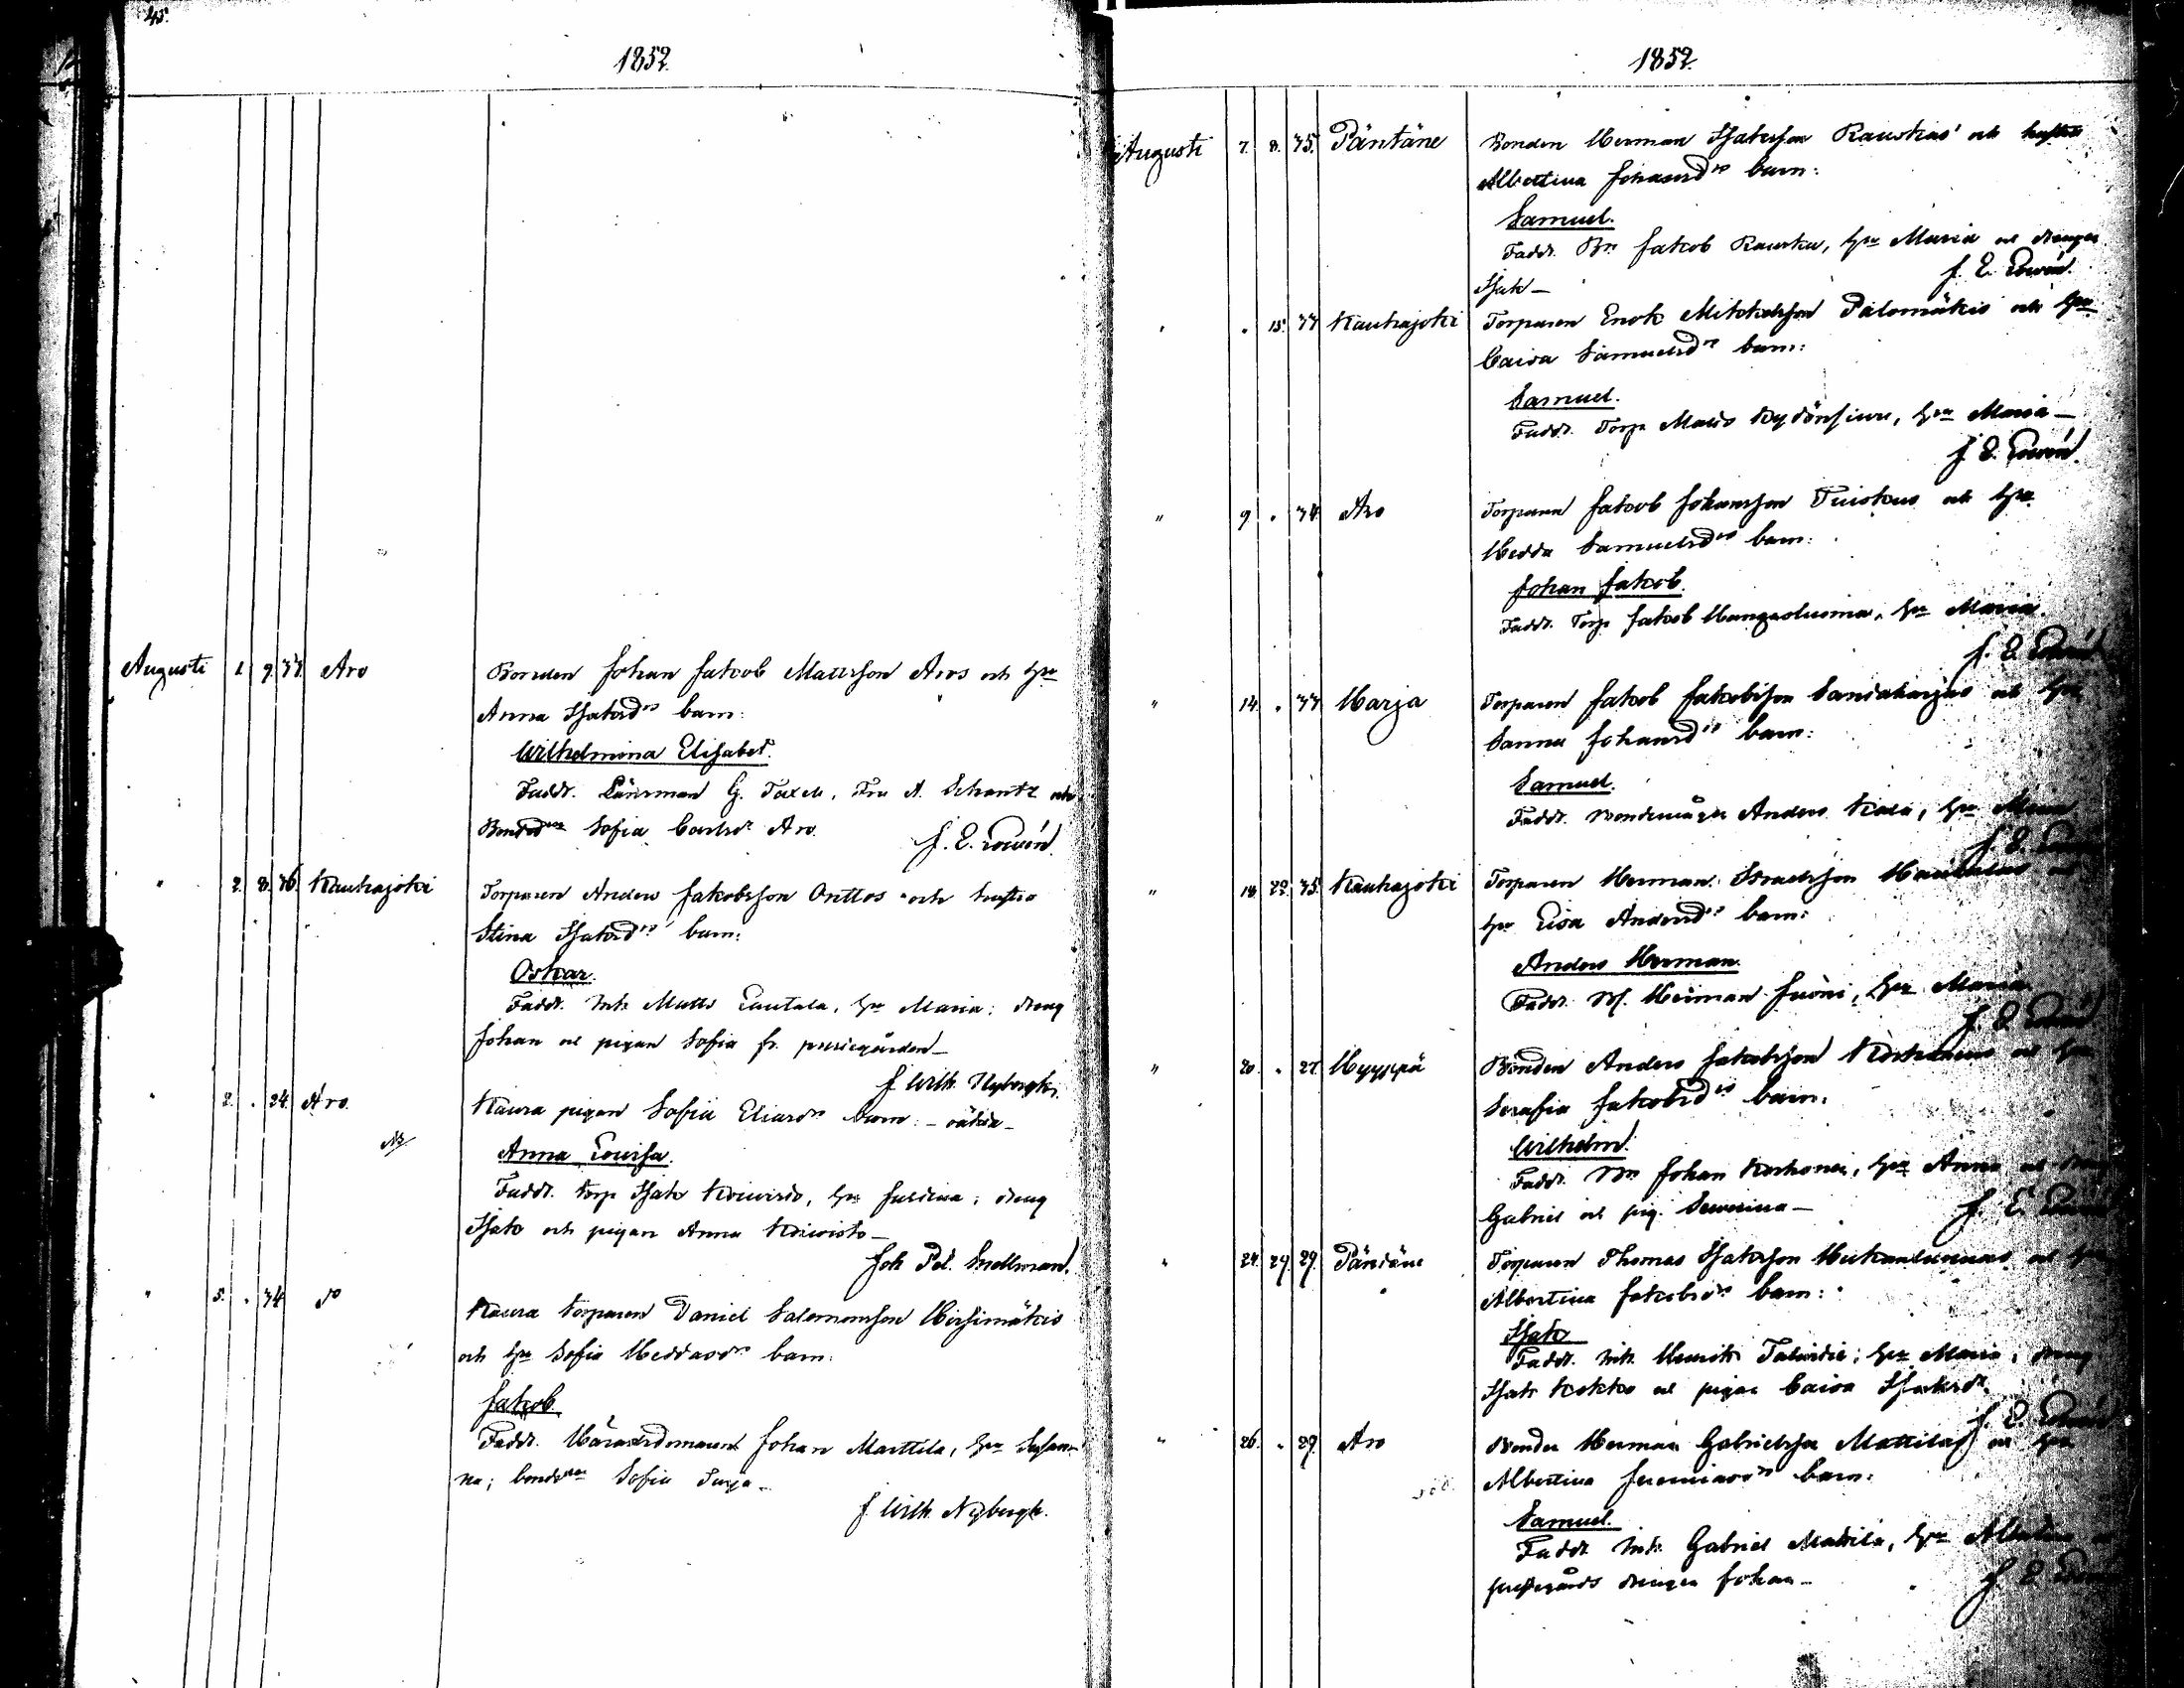 45.
1852.
Augusti 1. 9. 33. Aro Bonden Johan Jakob Mattsson Aros och hu
Anna Isaksdr barn:
Wilhelmina Elisabet.
Faddr. Länsman G. Taxell, Fru A. Schantz och
Sofia Carlsdr Aro. J. E. Lowén.
" 2. 8. 36. Kauhajoki Torparen Anders Jakobsson Onttos och hustru
Stina Isaksdrs barn:
Oskar.
Faddr. Inh. Matts Lautala, hu Maria; dreng
Johan och pigan Sofia fr. prestegården—
J. Wilh. Nybergh.
" 2. . 24. Aro. Kaura pigan Sofia Eliasdrs barn: — oäkta —
Anna Lovisa.
Faddr. torp. Isak Koivisto, hu Justina; dreng
Isak och pigan Anna Koivisto—
Joh Pet. Snellman.
" 5. . 34. do Kaura torparen Daniel Salomonsson Hirsimäkis
och hu Sofia barn:
Jakob.
Faddr. Häradsdomaren Johan Marttila, hu Susan-
na; Sofia
J. Wilh. Nybergh.
1852.
Augusti 7. 8. 35. Päntäne Bonden Herman Isaksson Rauskas och hustru
Albertina Johansdrs barn:
Samuel.
Faddr. Bn Jakob Rauska, hu Maria och drengen
Isak— J. E. Lowén.
" . 15. 33. Kauhajoki Torparen Enok Palomäkis och hu
Caisa Samuelsdrs barn:
Samuel.
Faddr. Torp. Matts hu Maria—
J. E. Lowén.
" 9. . 34. Aro Torparen Jakob Johansson Tuiskus och hu
Hedda Samuelsdrs barn:
Johan Jakob.
Faddr. Torp. Jakob Hangasluoma, hu Maria.
J. E. Lowén
" 14. . 33. Harja Torparen Jakob Jakobsson Santaharjus och hu
Sanna Johansdrs barn:
Samuel.
Faddr. Bondemågen Anders hu Maria
J. E. Lowén
" 18. 22. 35. Kauhajoki Torparen Herman Israelsson och
hu Lisa Andersdrs barn:
Anders Herman.
Faddr. Herman Juoni, hu Maria.
J. E. Lowén
" 20. . 27. Hyyppä Bonden Anders Jakobsson och hu
Serafia Jakobsdrs barn:
Wilhelm.
Faddr. Bn Johan hu Anna och dreng
Gabriel och pig. Severina— J. E. Lowén
" 24. 29. 29. Päntäne Torparen Thomas Isaksson och hu
Albertina Jakobsdrs barn:
Isak
Faddr. Inh. Henrik hu Maria, dreng
Isak Kokko och pigan Caisa Isaksdr.
J. E. Lowén
" 26. . 29. Aro Bonden Herman Gabrielsson Mattilas och hu
Albertina Jeremiasdrs barn:
Samuel.
Faddr. Inh. Gabriel Mattila, hu Albertina och
prestgårds drengen Johan— J. E. Lowén